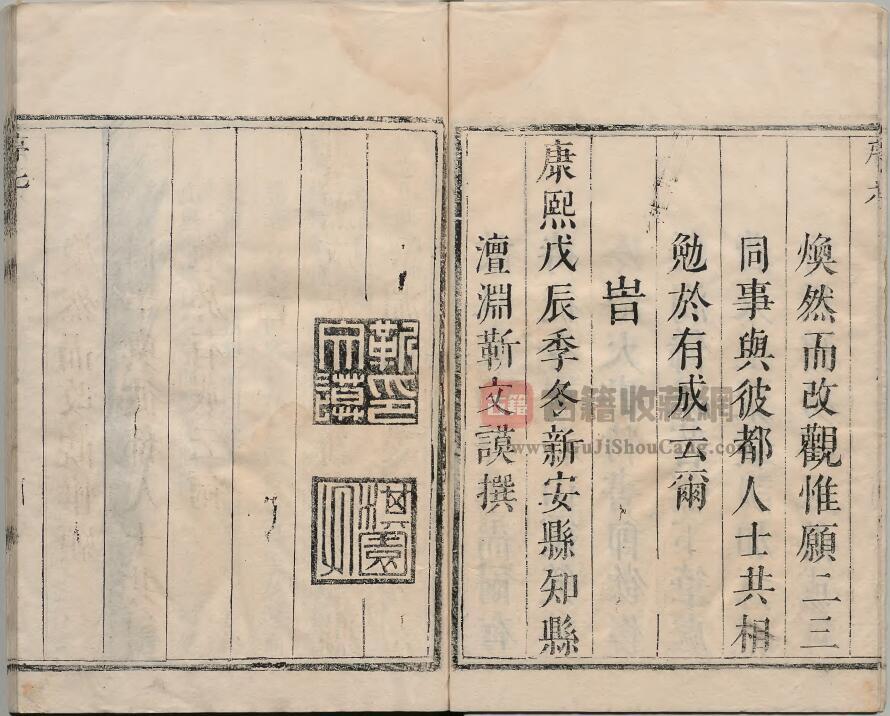 序六
煥然而改觀惟願二三
同事與彼都人士共相
勉於有成云爾
旹
康熙戊辰季冬新安縣知縣
澶淵靳文謨撰
靳文謨印
序七
古籍
古籍收藏網
www.GuJiShouCang.com